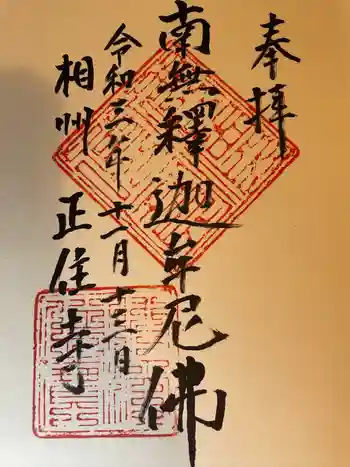 奉拝
南無釋迦牟尼佛
令和三年十一月十三日
相州 正住寺